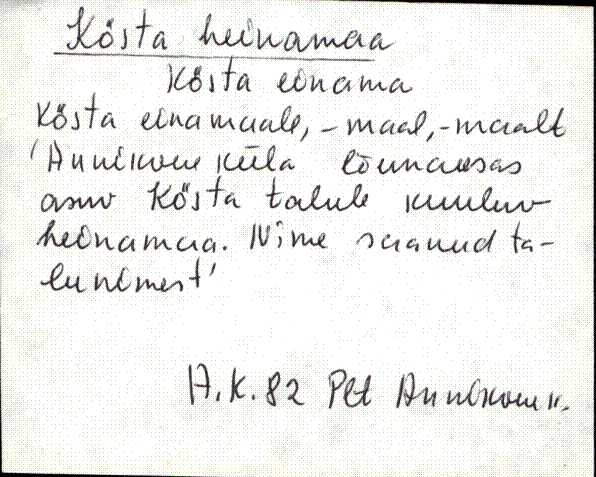 Kõsta heinamaa
Kõsta einama
Kõsta einamaale, -maal, -maalt
'Annikvere küla lõunaosas
asuv Kõsta talule kuuluv
heinamaa. Nime saanud ta-
lunimest'
A.K. 82 Plt Annikvere k.